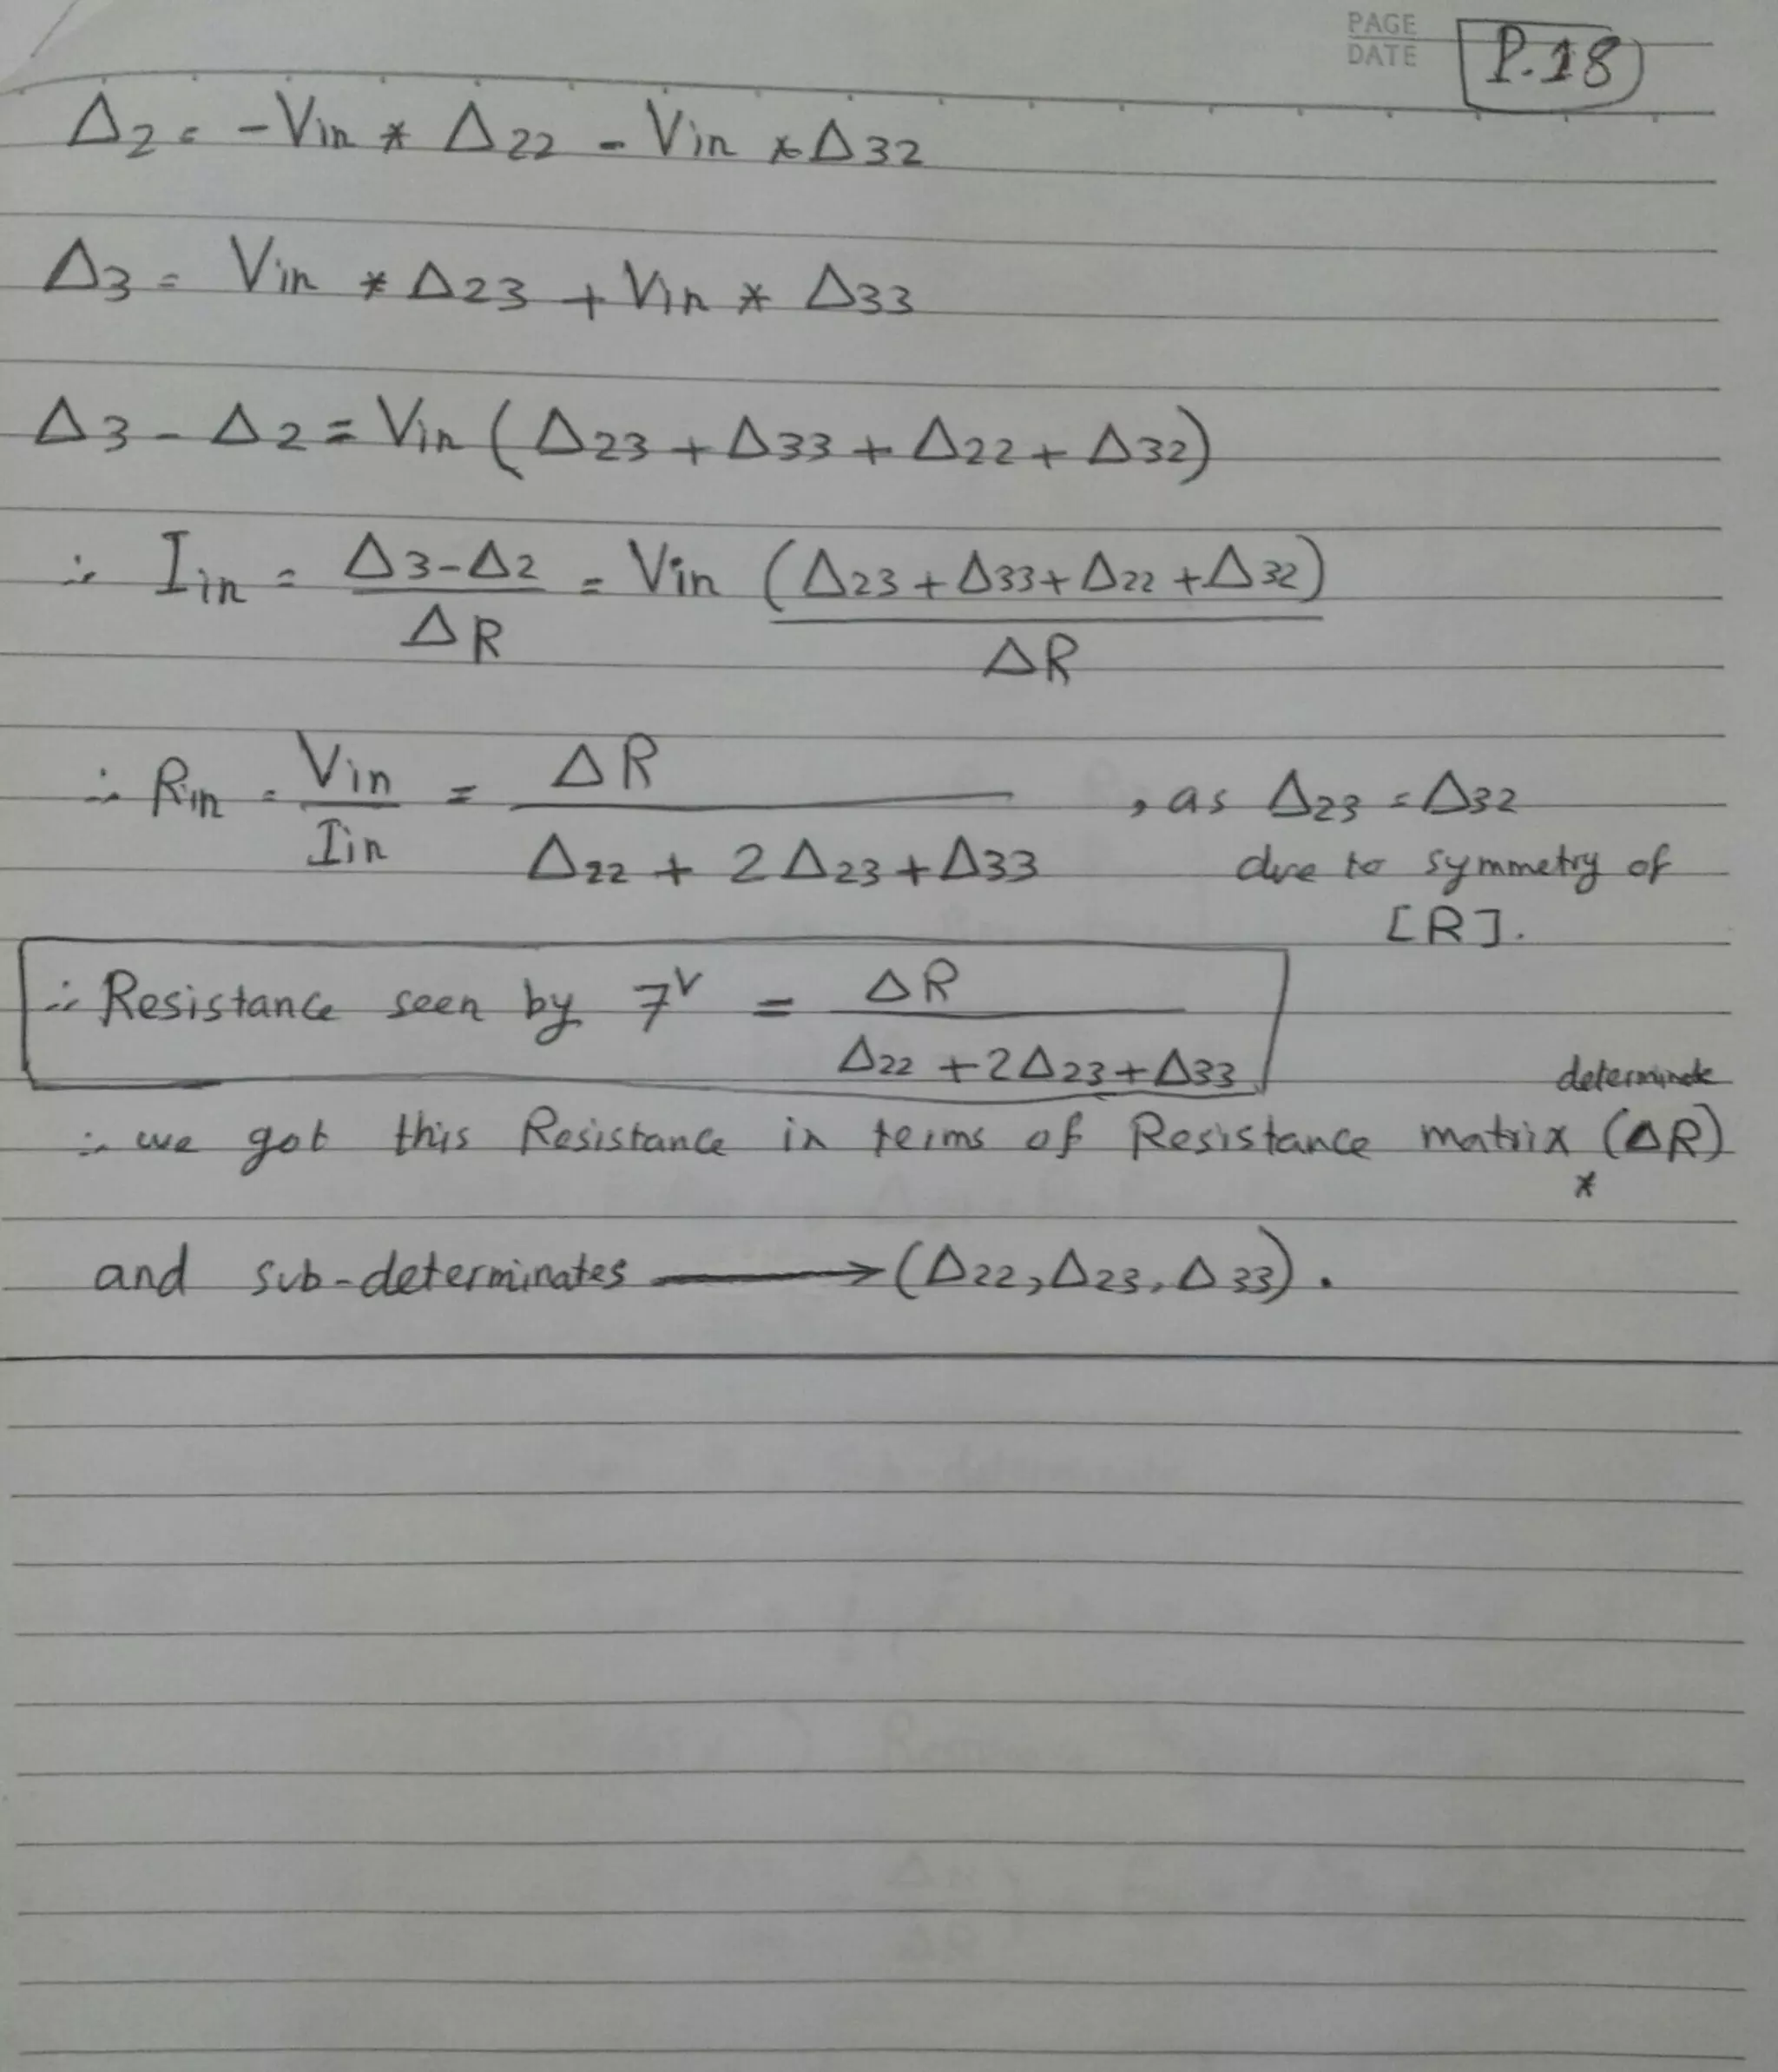 PAGE
DATE
P.18
Δ2 = -Vin * Δ22 - Vin * Δ32
Δ3 = Vin * Δ23 + Vin * Δ33
Δ3 - Δ2 = Vin (Δ23 + Δ33 + Δ22 + Δ32)
∴ Iin = Δ3-Δ2 / ΔR = Vin (Δ23 + Δ33 + Δ22 + Δ32) / ΔR
∴ Rin = Vin / Iin = ΔR / Δ22 + 2Δ23 + Δ33 , as Δ23 = Δ32
due to symmetry of
[R].
∴ Resistance seen by 7V = ΔR / Δ22 + 2Δ23 + Δ33
determinate
∴ we got this Resistance in terms of Resistance matrix (ΔR)
*
and sub-determinates → (Δ22, Δ23, Δ33).